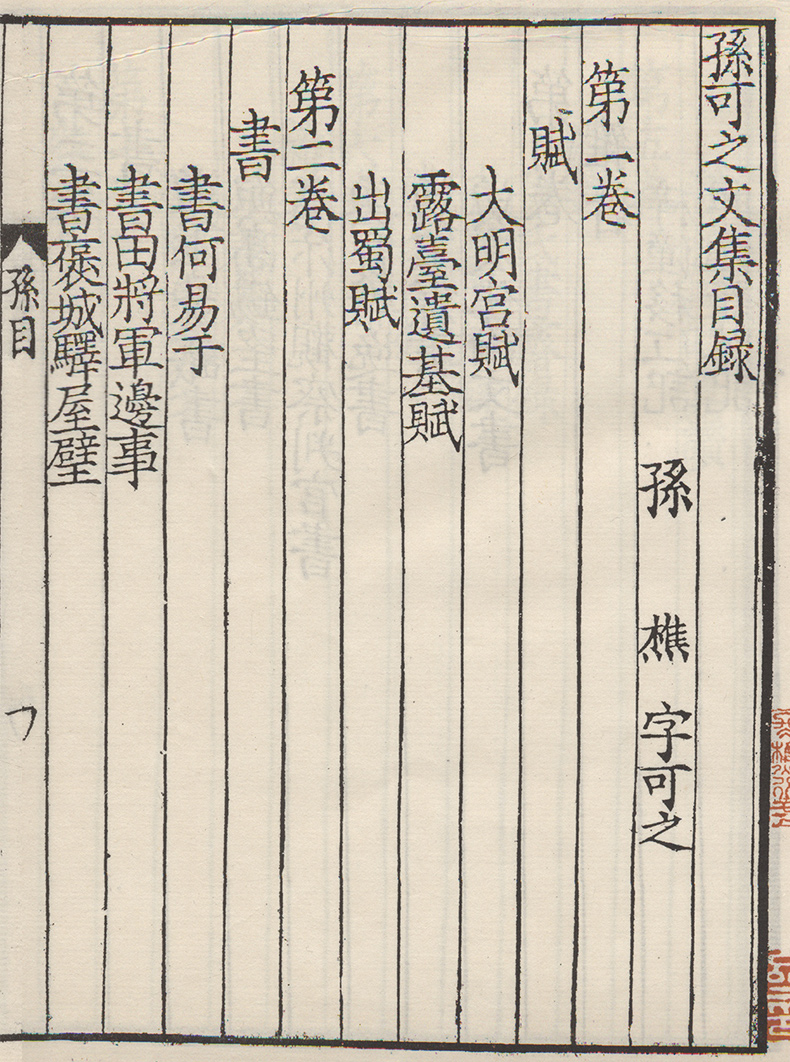 孫可之文集目録
孫樵字可之
第一卷
賦
大明宮賦
露臺遺基賦
出蜀賦
第二卷
書
書何易于
書田將軍邊事
書褒城驛屋壁
孫目